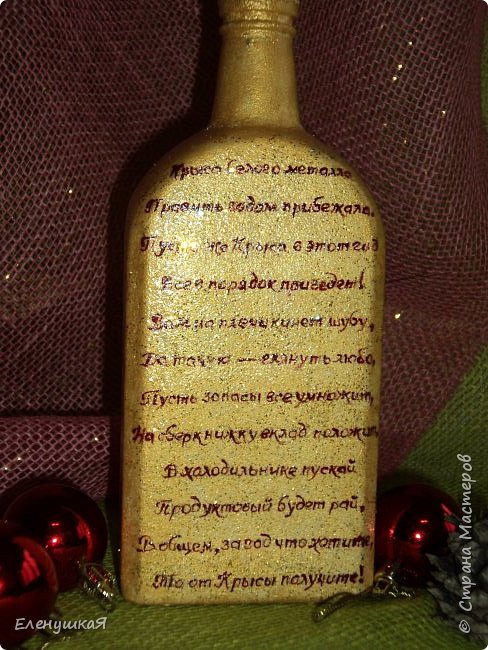 Крыса белого металла
Править годом прибежала.
Пусть же Крыса в этот год
Всё в порядок приведет!
Вам на плечи кинет шубу,
Да такую — ехнуть любо,
Пусть запасы все умножит,
На сберкнижку вклад положит,
В холодильнике пускай
Продуктовый будет рай,
В общем, за год что хотите,
То от Крысы получите!
ЕленушкаЯ
© Страна Мастеров